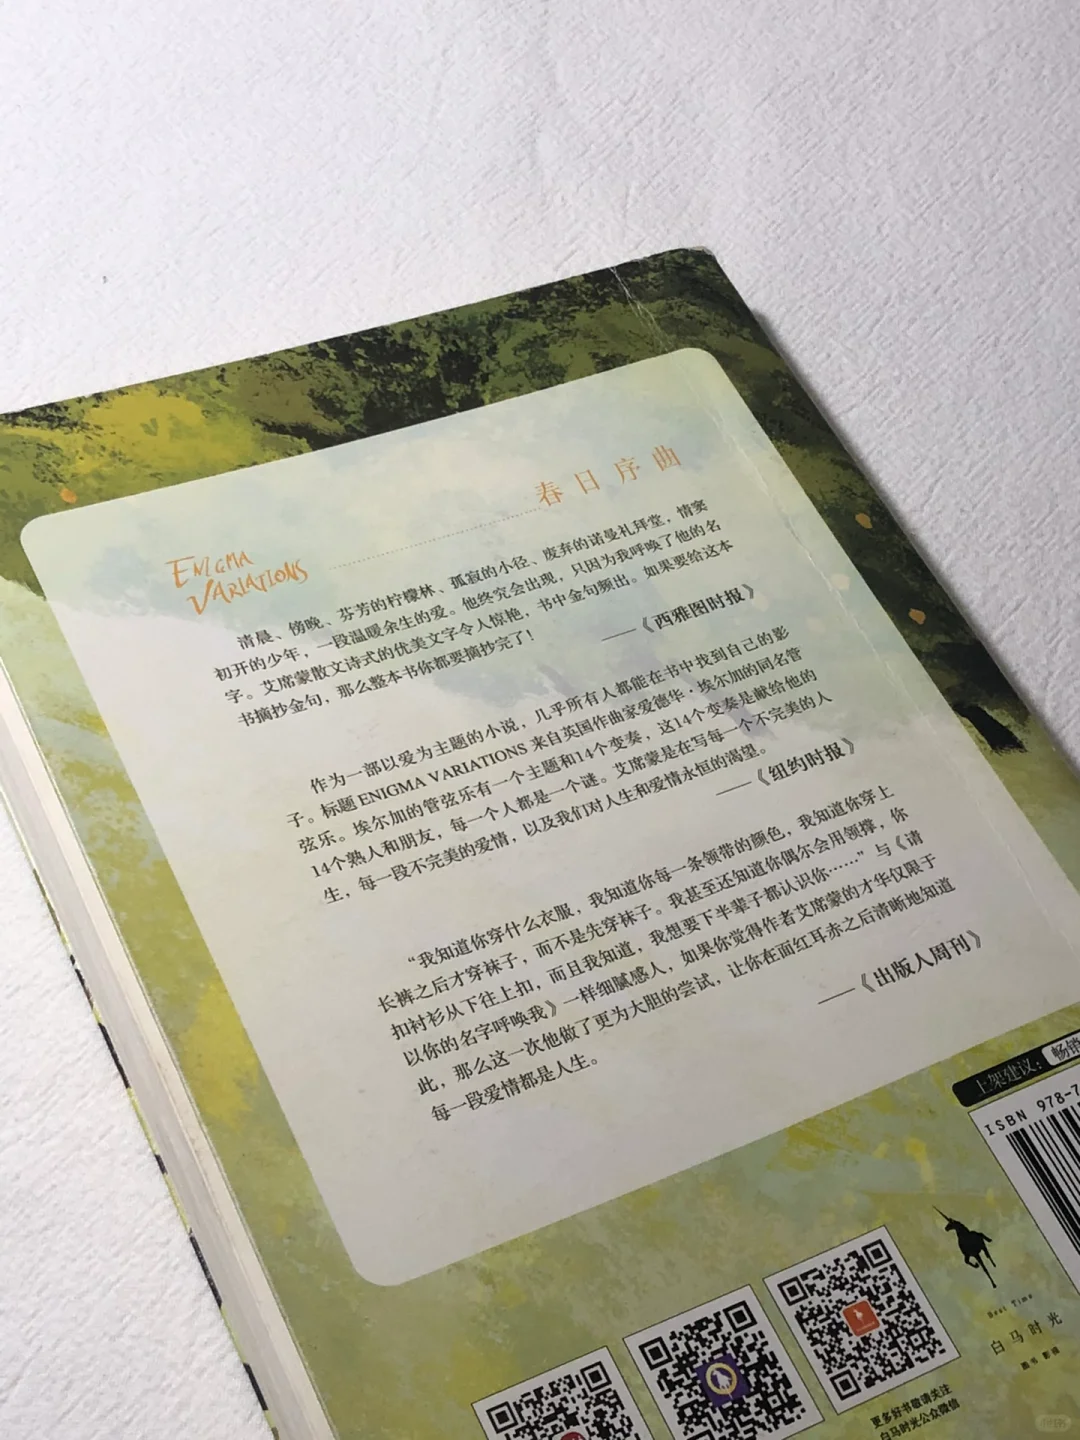 春日序曲
ENIGMA
VARIATIONS
清晨、傍晚、芬芳的柠檬林、孤寂的小径、废弃的诺曼礼拜堂，情窦
初开的少年，一段温暖余生的爱。他终究会出现，只因为我呼唤了他的名
字。艾席蒙散文诗式的优美文字令人惊艳，书中金句频出。如果要给这本
书摘抄金句，那么整本书你都要摘抄完了！
——《西雅图时报》
作为一部以爱为主题的小说，几乎所有人都能在书中找到自己的影
子。标题 ENIGMA VARIATIONS 来自英国作曲家爱德华·埃尔加的同名管
弦乐。埃尔加的管弦乐有一个主题和14个变奏，这14个变奏是献给他的
14个熟人和朋友，每一个人都是一个谜。艾席蒙是在写每一个不完美的人
生，每一段不完美的爱情，以及我们对人生和爱情永恒的渴望。
——《纽约时报》
“我知道你穿什么衣服，我知道你每一条领带的颜色，我知道你穿上
长裤之后才穿袜子，而不是先穿袜子。我甚至还知道你偶尔会用领撑，你
扣衬衫从下往上扣，而且我知道，我想要下半辈子都认识你……”与《请
以你的名字呼唤我》一样细腻感人，如果你觉得作者艾席蒙的才华仅限于
此，那么这一次他做了更为大胆的尝试，让你在面红耳赤之后清晰地知道
每一段爱情都是人生。
——《出版人周刊》
上架建议：畅销
ISBN 978-7
Best Time
白马时光
更多好书敬请关注
白马时光公众微信